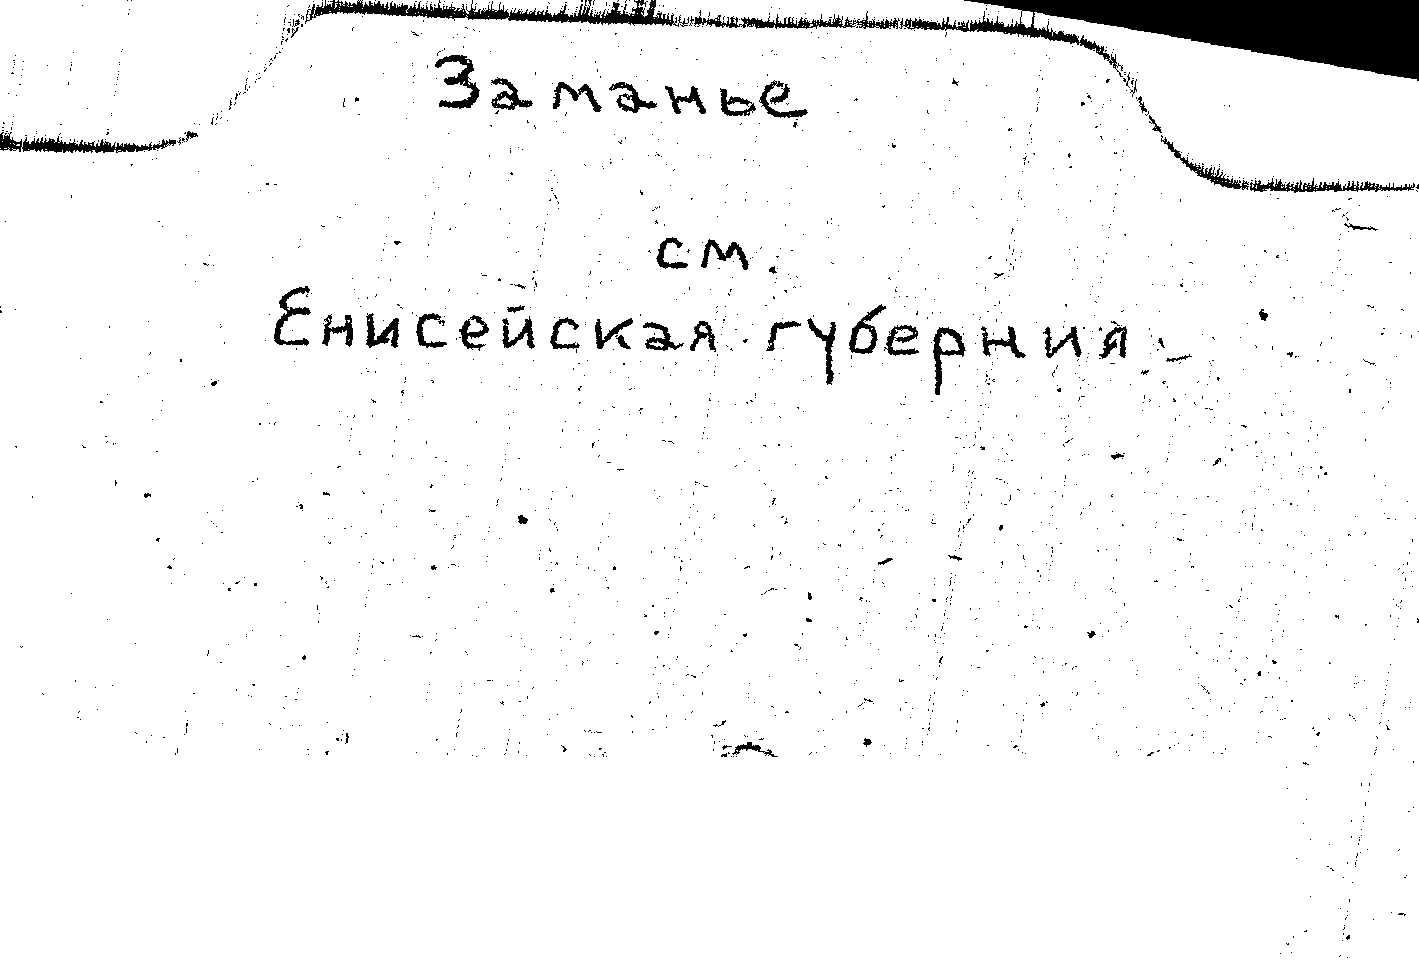 Заманье
см.
Енисейская губерния